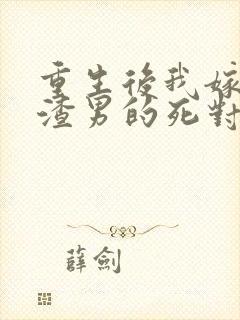 重生後我嫁
渣男的死對
薛劍